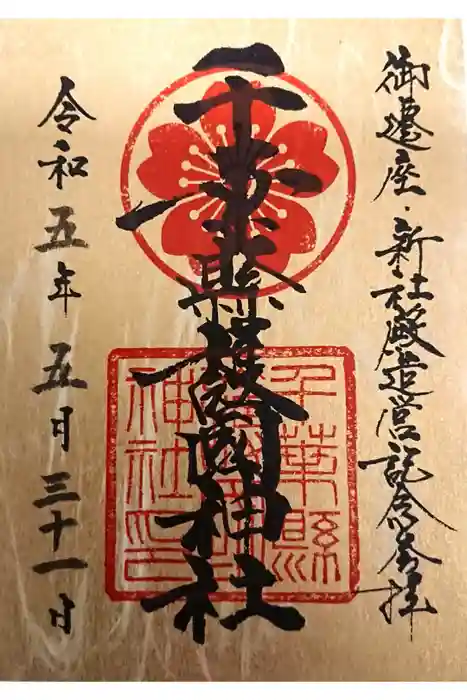 御遷座・新社殿造営記念参拝
千葉縣護國神社
千葉縣
護國神
社印
令和五年五月三十一日